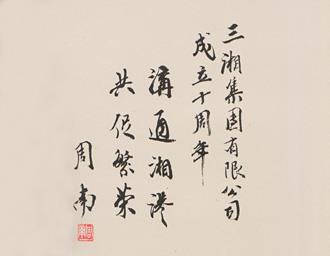 三湘集团有限公司
成立十周年
沟通湘港
共促繁荣
周南